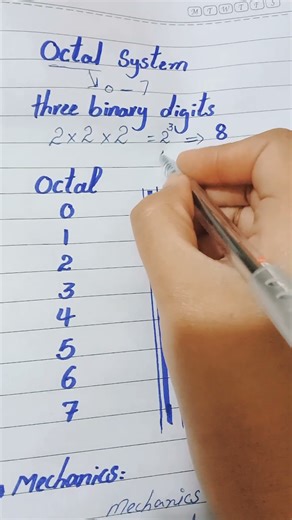 M T W T F S
Octal System
0 - 7
three binary digits
2 × 2 × 2 = 2³ ⇒ 8
Octal
0
1
2
3
4
5
6
7
Mechanics:
Mechanics